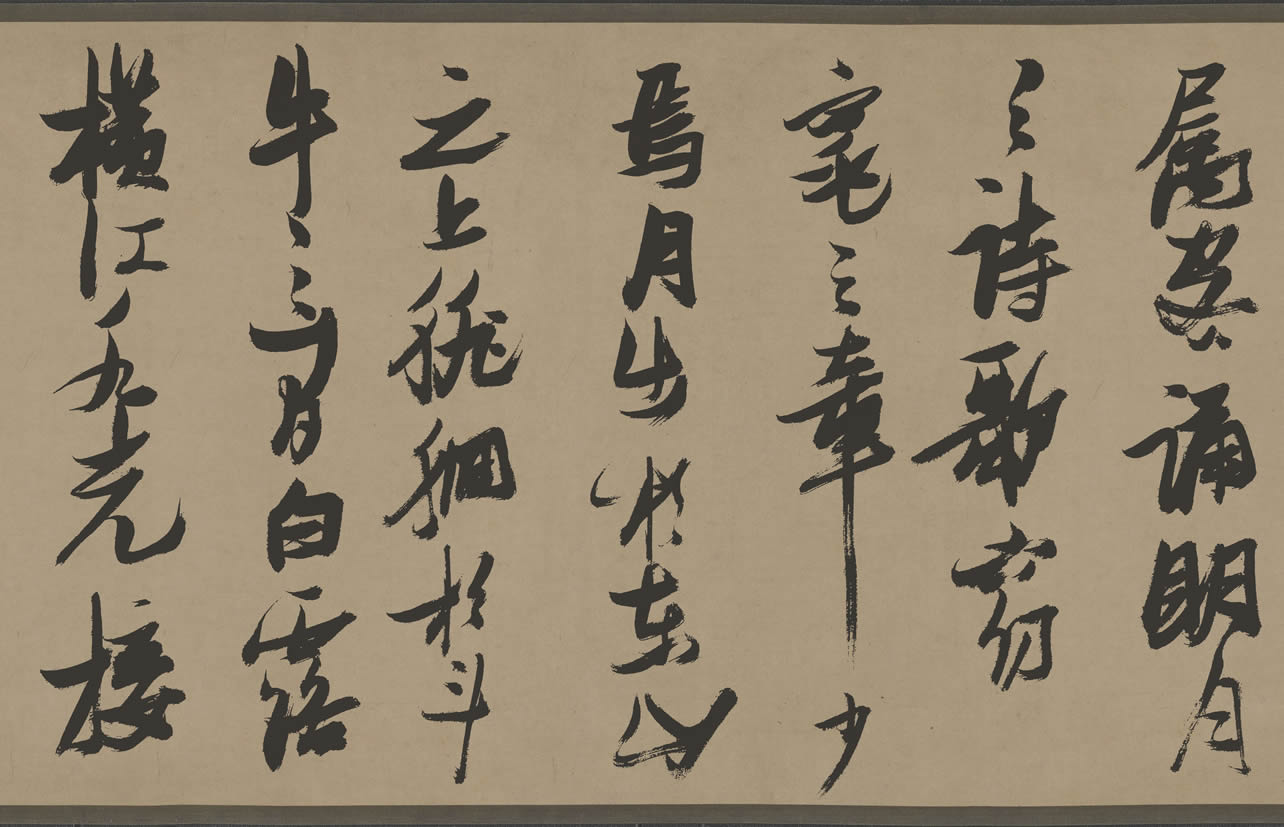 属客誦明月
之詩歌窈
窕之章少
焉月出於東山
之上徘徊於斗
牛之間白露
橫江水光接